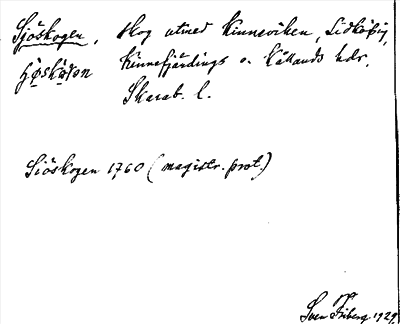 Sjöskogen, skog utmed Kinneviken, Lidköping,
Kinnefjärdings o. Kållands hdr,
Skarab. l.
Siöskogen 1760 (magistr. prot.)
Sven Friberg 1929